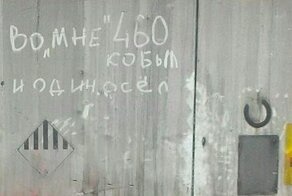 ВО „МНЕ" 460
КОБЫЛ
И ОДИН ОСЁЛ